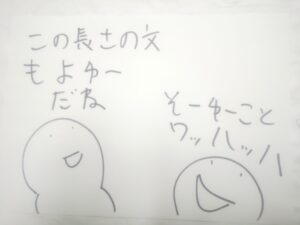 この長さの文
もよゆー
だね
そーゆーこと
ワッハッハ